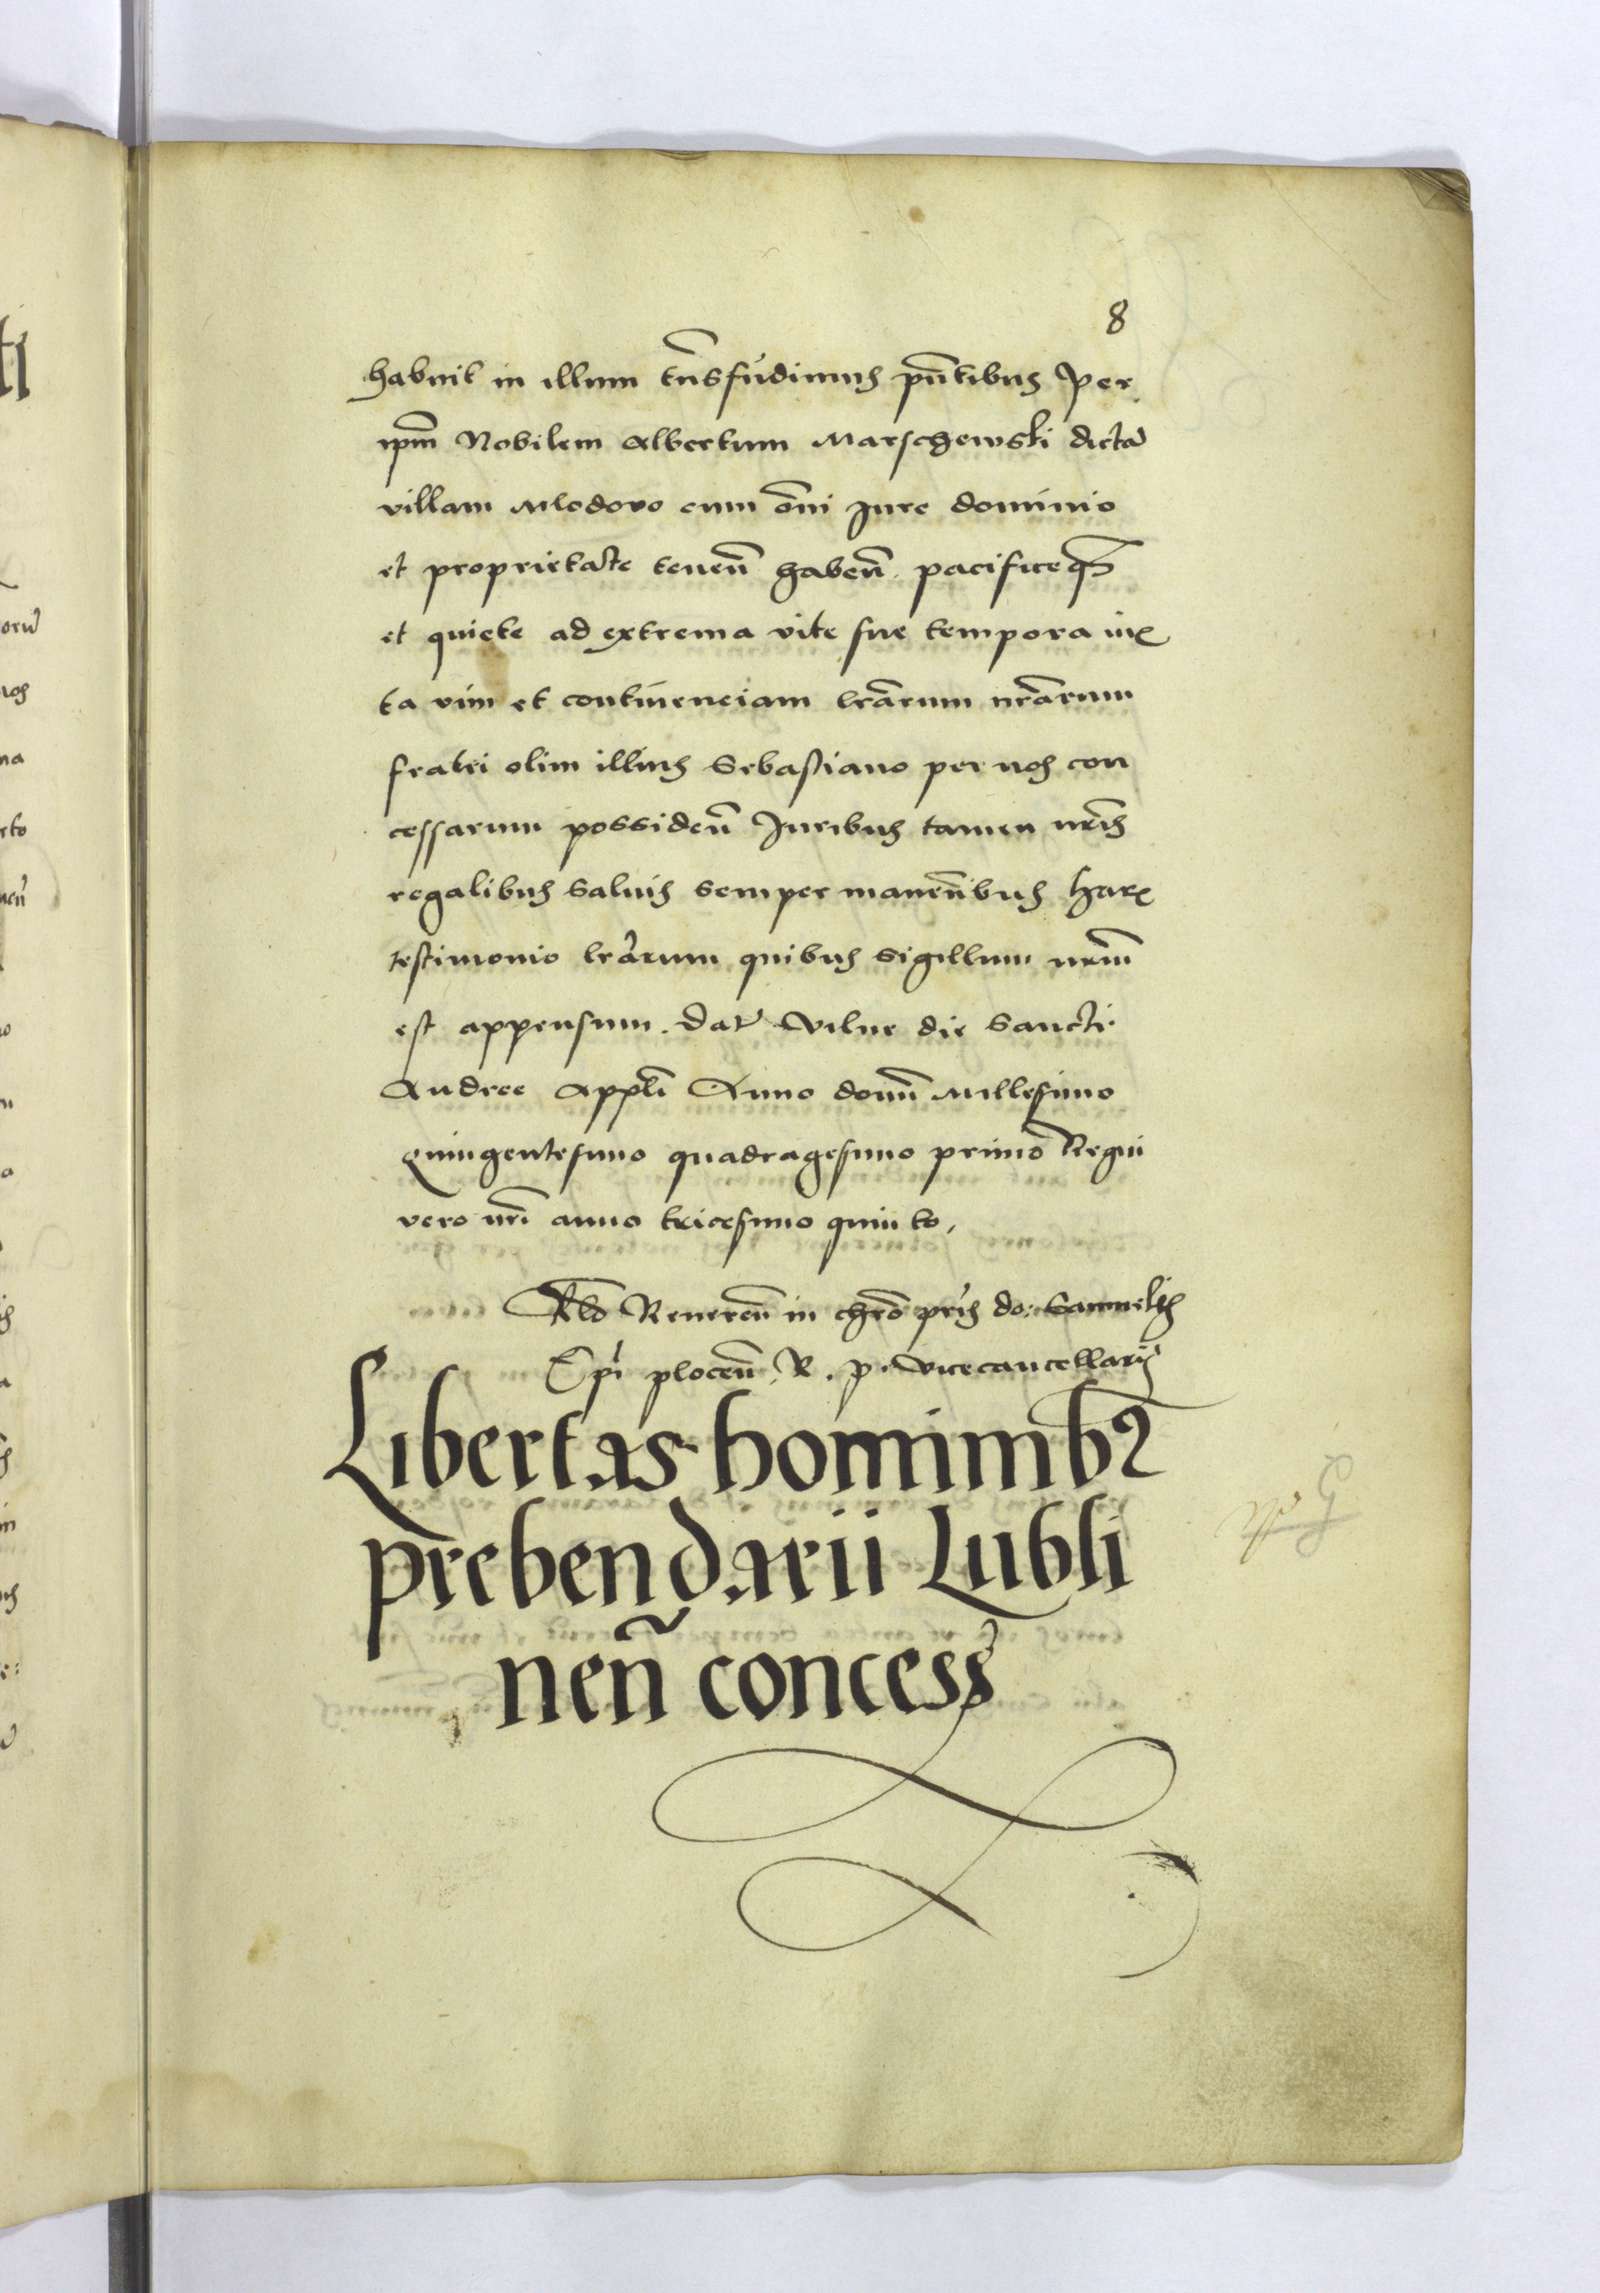 8
habuit in illum trn̄sfudimus pn̄tibus Per
ipm̄ Nobilem Albertum Marschewski dictā
villam Mlodovo cum om̄i Jure dominio
et proprietate tenen̄ haben̄ pacifice
et quiete ad extrema vite sue tempora iux
ta vim et continenciam lrārum nrārum
fratri olim illius Sebastiano per nos con
cessarum possiden̄ Juribus tamen nrīs
regalibus saluis semper manen̄ibus har
testimonio lrārum quibus sigillum nrūm
est appensum. Dat Vilne die Sancti
Andree Appl̄i Anno domī Millesimo
Quingentesimo quadragesimo primo Regni
vero nrī anno tricesimo quinto,
Rlo Reueren̄ in chrō prīs do: Samuelis
Epī plocen̄, R. p. vicecancellarii
Libertas hominibꝫ
prebendarii Lubli
nen̄ concess